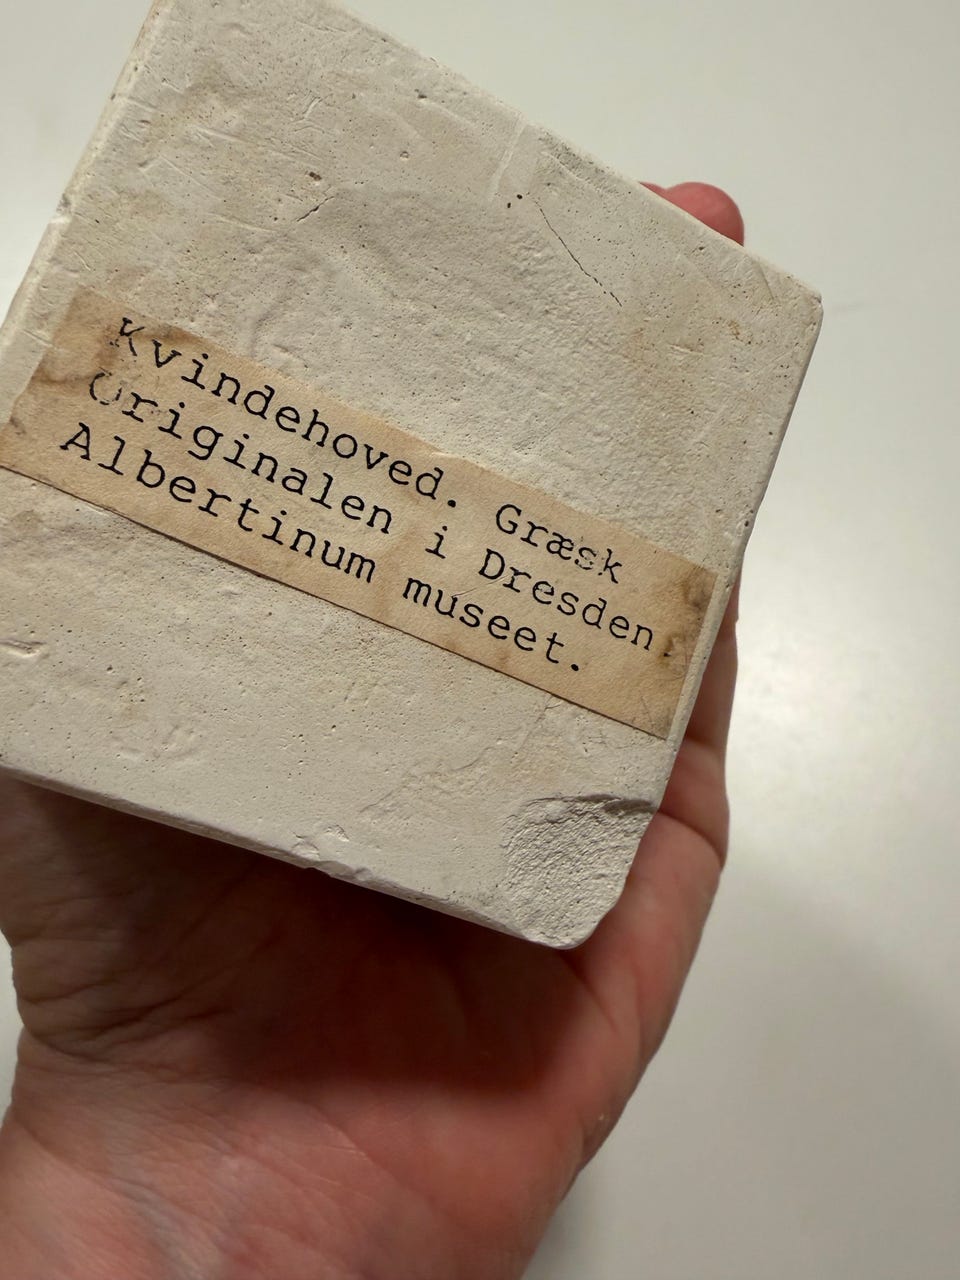 Kvindehoved. Græsk
Originalen i Dresden.
Albertinum museet.